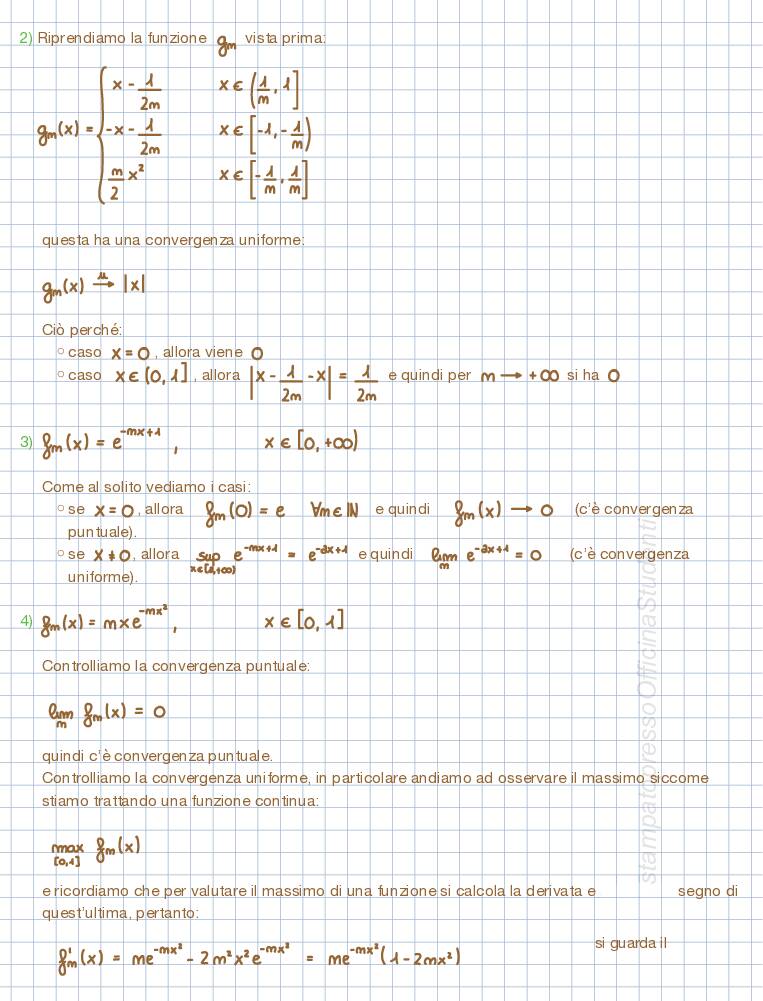 2) Riprendiamo la funzione gₘ vista prima:
gₘ(x) = { x - 1/2m    x ∈ (1/m, 1]
-x - 1/2m    x ∈ [-1, -1/m)
m/2 x²    x ∈ [-1/m, 1/m]
questa ha una convergenza uniforme:
gₘ(x) →ᵘ |x|
Ciò perché:
○ caso x = 0, allora viene 0
○ caso x ∈ (0, 1], allora |x - 1/2m - x| = 1/2m e quindi per m → +∞ si ha 0
3) fₘ(x) = e^(-mx+1),    x ∈ [0, +∞)
Come al solito vediamo i casi:
○ se x = 0, allora fₘ(0) = e ∀m ∈ ℕ e quindi fₘ(x) → 0 (c'è convergenza
puntuale).
○ se x ≠ 0, allora sup e^(-mx+1) = e^(-2x+1) e quindi lim_m e^(-2x+1) = 0 (c'è convergenza
uniforme).
4) fₘ(x) = mxe^(-mx²),    x ∈ [0, 1]
Controlliamo la convergenza puntuale:
lim_m fₘ(x) = 0
quindi c'è convergenza puntuale.
Controlliamo la convergenza uniforme, in particolare andiamo ad osservare il massimo siccome
stiamo trattando una funzione continua:
max_[0,1] fₘ(x)
e ricordiamo che per valutare il massimo di una funzione si calcola la derivata e segno di
quest'ultima, pertanto:
si guarda il
f'ₘ(x) = me^(-mx²) - 2m²x²e^(-mx²) = me^(-mx²)(1-2mx²)
stampato presso Officina Studenti